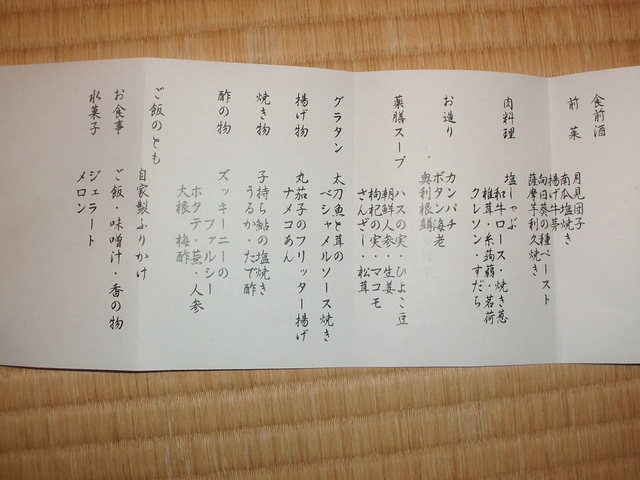 食前酒
前菜
月見団子
南瓜塩焼き
揚げ牛蒡
向日葵の種ペースト
薩摩芋利久焼き
肉料理
塩しゃぶ
和牛ロース・焼き葱
椎茸・糸蒟蒻・茗荷
クレソン・すだち
お造り
カンパチ
ボタン海老
・奥利根鱒
薬膳スープ
ハスの実・ひよこ豆
朝鮮人参・生姜
枸杞の実・マコモ
さんざし・松茸
グラタン
太刀魚と茸の
ベシャメルソース焼き
揚げ物
丸茄子のフリッター揚げ
ナメコあん
焼き物
子持ち鮎の塩焼き
うるか・たで酢
酢の物
ズッキーニーの
ファルシー
ホタテ・蕪・人参
大根 梅酢
ご飯のとも
自家製ふりかけ
お食事
ご飯・味噌汁・香の物
水菓子
ジェラート
メロン